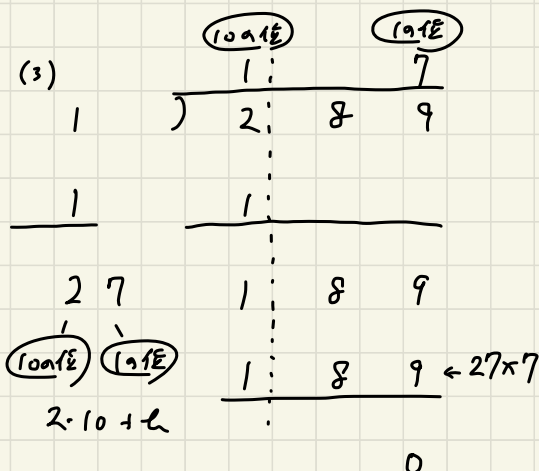 10の位 1の位
(3) 1 7
1 ) 2 8 9
1 1
2 7 1 8 9
10の位 1の位 1 8 9 ← 27×7
2・10+h
0